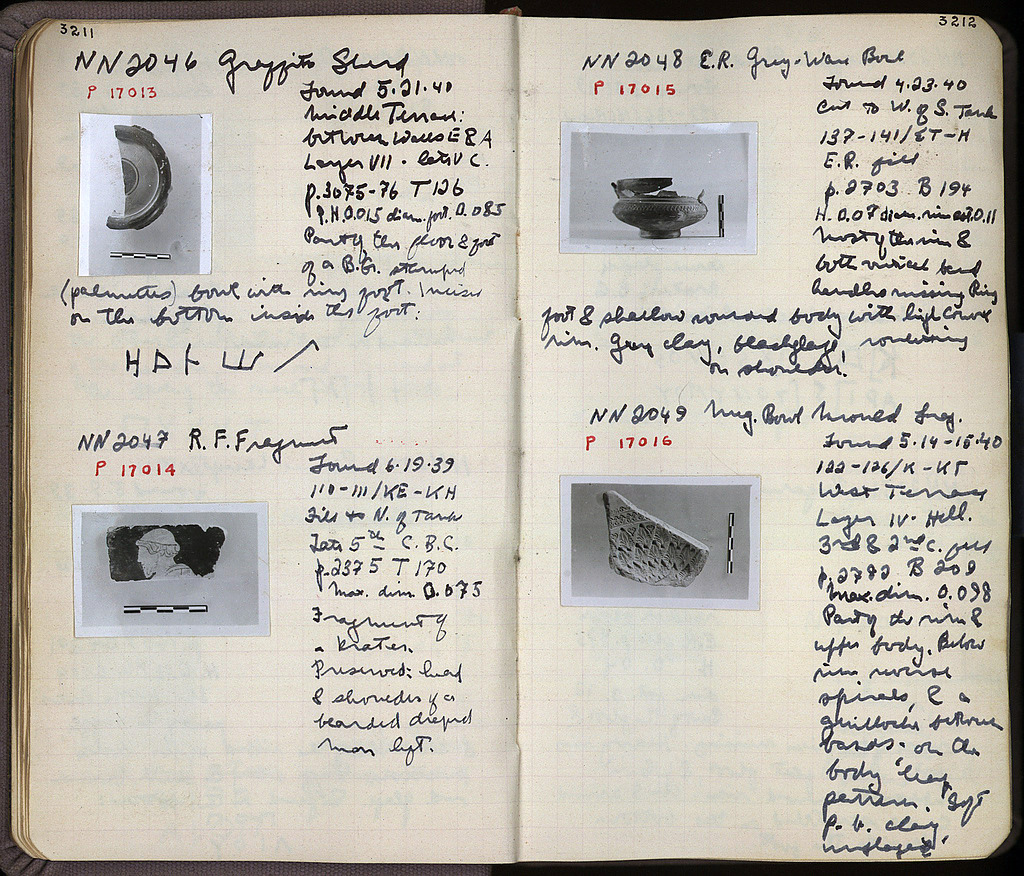 3211
NN2046 Graffito Sherd
P 17013
Found 5.21.40
Middle Terrace:
between Walls E & A
Layer VII - late V C.
p.3075-76 T 126
P.H. 0.015 diam. foot. 0.085
Part of the floor & foot
of a B.G. stamped
(palmettes) bowl with ring foot. Incised
on the bottom inside the foot:
NN2047 R.F. Fragment
P 17014
Found 6.19.39
110-111/KE-KH
Fill to N. of Tank
Late 5th C. B.C.
p.2375 T 170
Max. dim. 0.073
Fragment of
a krater.
Preserved: head
& shoulders of a
bearded draped
man left.
3212
NN2048 E.R. Grey-Ware Bowl
P 17015
Found 4.23.40
Cut to W. of S. Tank
137-141/ΣT-H
E.R. fill
p.2703 B 194
H. 0.07 diam. rim est. 0.11
Most of the rim &
both vertical band
handles missing Ring
foot & shallow round body with high concave
rim. Grey clay, black glaze, rouletting
on shoulder.
NN2049 Meg. Bowl Mould Frag.
P 17016
Found 5.14-15.40
122-126/K-KΓ
West Terrace
Layer IV - Hell.
3rd & 2nd c. fill
p.2782 B 209
Max. dim. 0.098
Part of the rim &
upper body. Below
rim reverse
spirals, & a
guilloche between
bands - on the
body leaf
pattern. Soft
P. b. clay
unglazed